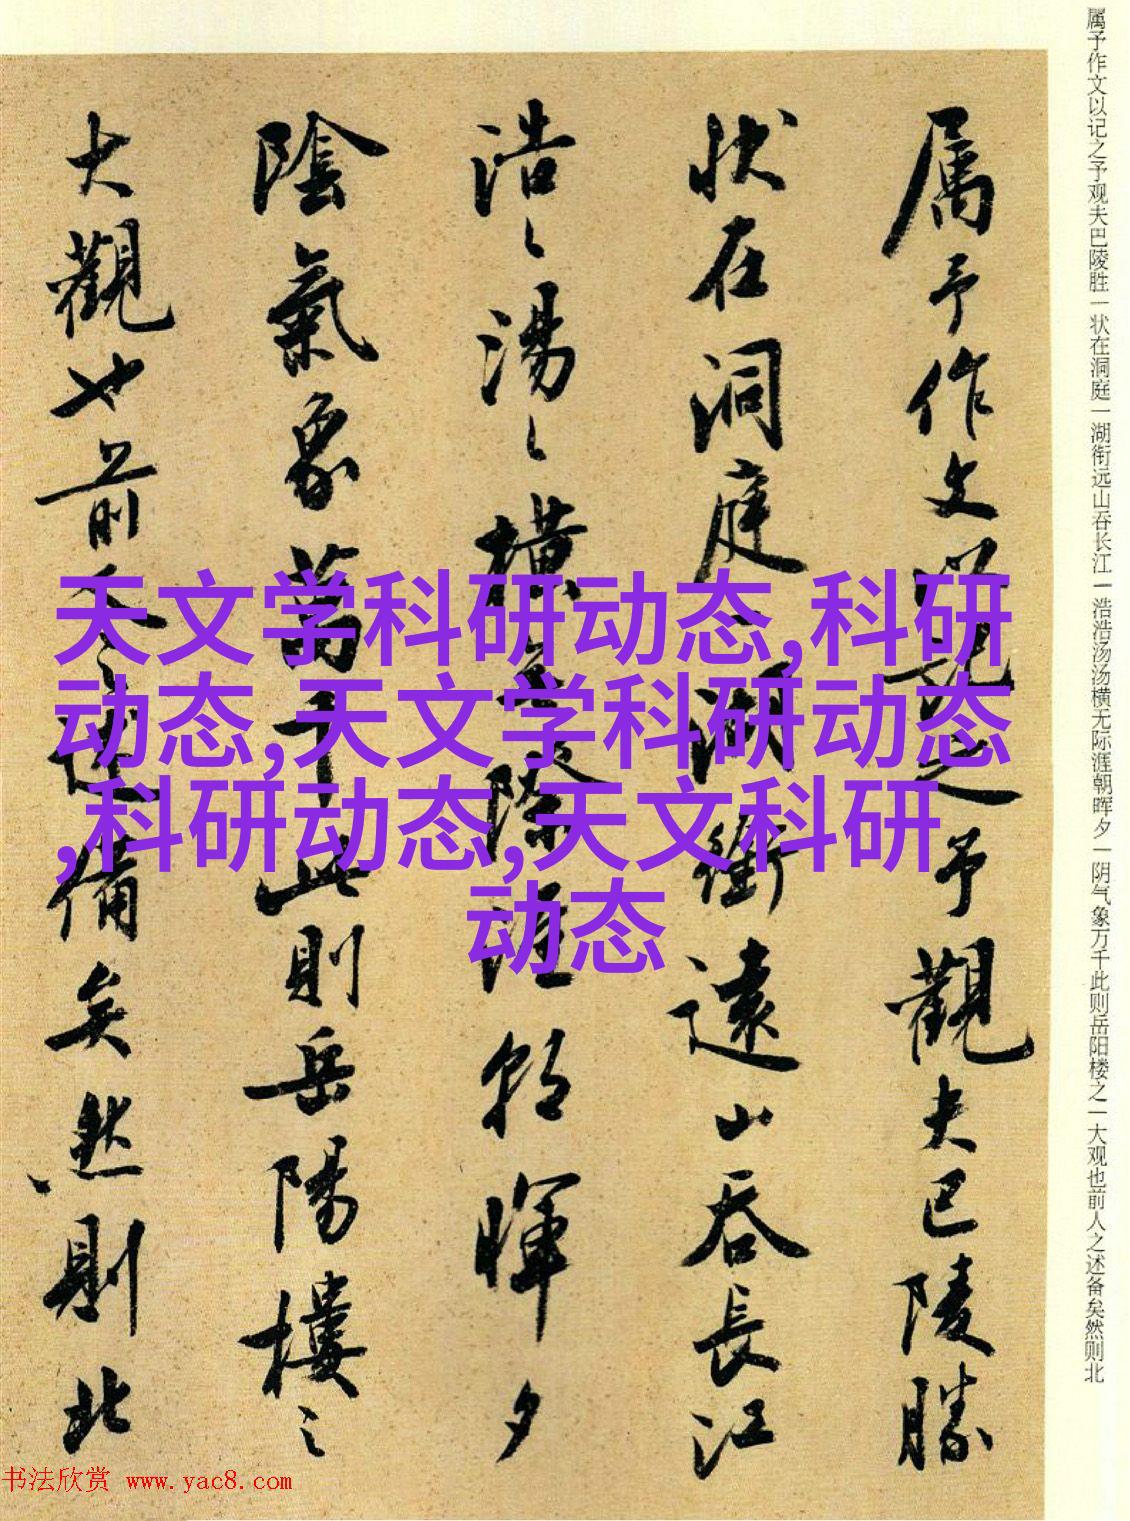 属予作文以记之予观夫巴陵胜一状在洞庭一湖衔远山吞长江一浩浩汤汤横无际涯朝晖夕一阴气象万千此则岳阳楼之一大观也前人之述备矣然则北
属予作文以記之予觀夫巴陵勝
狀在洞庭一湖銜遠山吞長江
浩〻湯〻橫無際涯朝暉夕
陰氣象萬千此則岳陽樓之
大觀也前人之述備矣然則北
天文学科研动态,科研
动态,天文学科研动态
,科研动态,天文科研
动态
书法欣赏 www.yac8.com